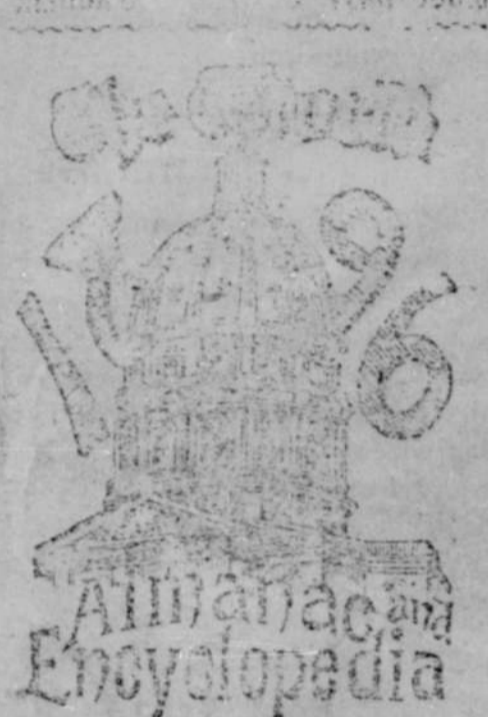 The World
1896
Almanac and
Encyclopedia